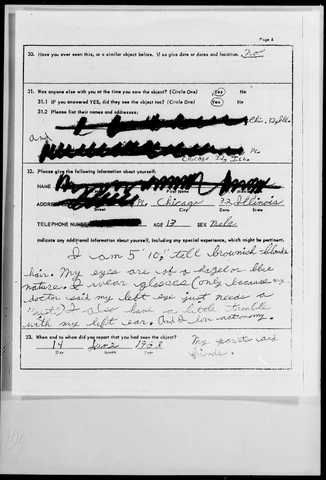 Page 8
30. Have you ever seen this, or a similar object before. If so give date or dates and location. No
31. Was anyone else with you at the time you saw the object? (Circle One) Yes No
31.1 IF you answered YES, did they see the object too? (Circle One) Yes No
31.2 Please list their names and addresses:
Chi, 32, Ill.
and
Pl. Chicago 32, Ill.
32. Please give the following information about yourself:
NAME
ADDRESS Pl. Chicago 32 Illinois
Street City Zone State
TELEPHONE NUMBER AGE 13 SEX Male
Indicate any additional information about yourself, including any special experience, which might be pertinent.
I am 5' 10" tall brownish blonde
hair. My eyes are of a hazel or blue
nature. I wear glasses (only because my
doctor said my left eye just needs a
"rest.") I also have a little trouble
with my left ear. And I love astronomy.
33. When and to whom did you report that you had seen the object?
14 June My parents and
Day Month Year friends.